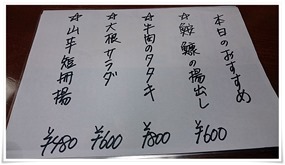 本日のおすすめ
☆鮟鱇の揚出し ¥600
☆牛肉のタタキ ¥800
☆大根サラダ ¥600
☆山芋短冊揚 ¥480